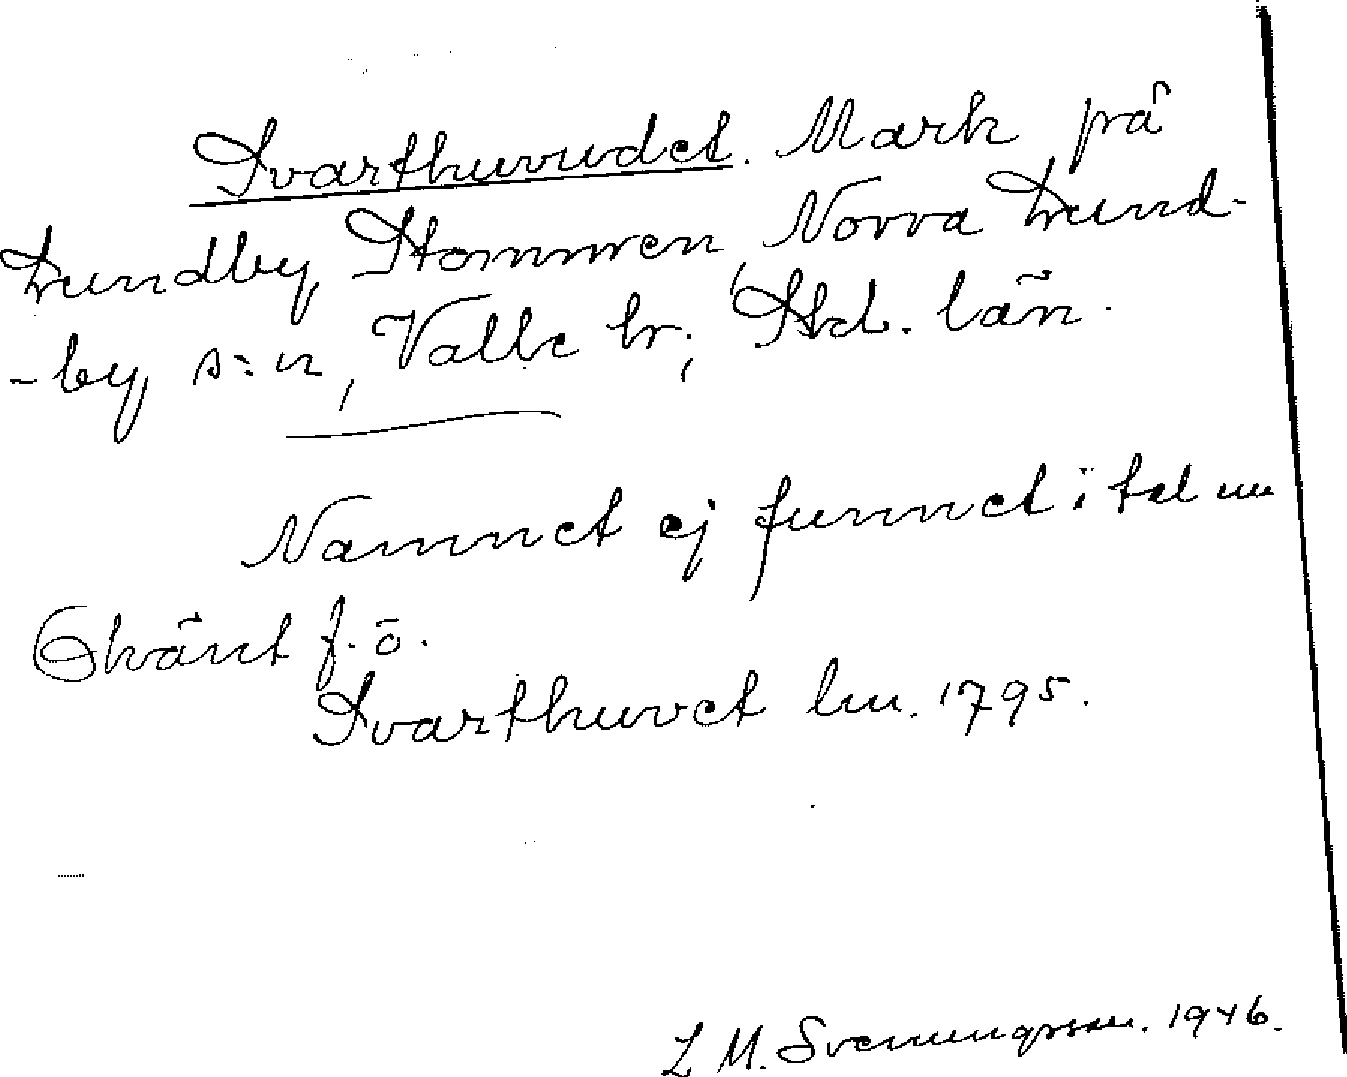 Svarthuvudet. Mark på
Lundby Stommen, Norra Lund-
-by s:n, Valle hr; Skd. län.
Namnet ej funnet i tal uu
Okänt f. ö.
Svarthuvet lm. 1795.
L M. Svenungsson. 1946.